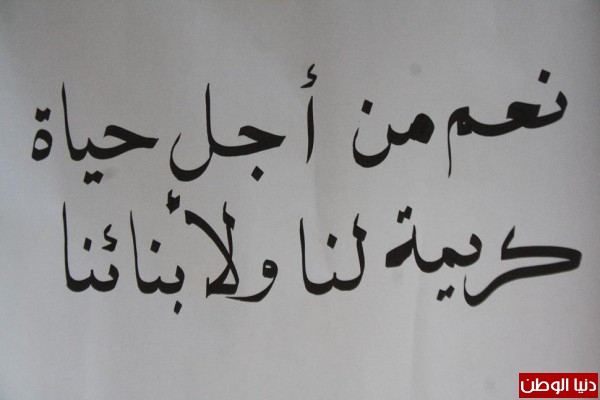 نعم من أجل حياة
كريمة لنا ولأبنائنا
دنيا الوطن